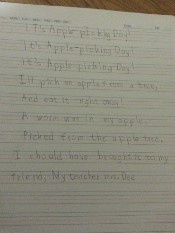 It's Apple picking Day!
It's Apple-picking Day!
It's Apple-picking Day!
I'll pick an apple from a tree,
And eat it right away!
A worm is in my apple,
Picked from the apple tree.
I should have brought it to my
friend, My teacher